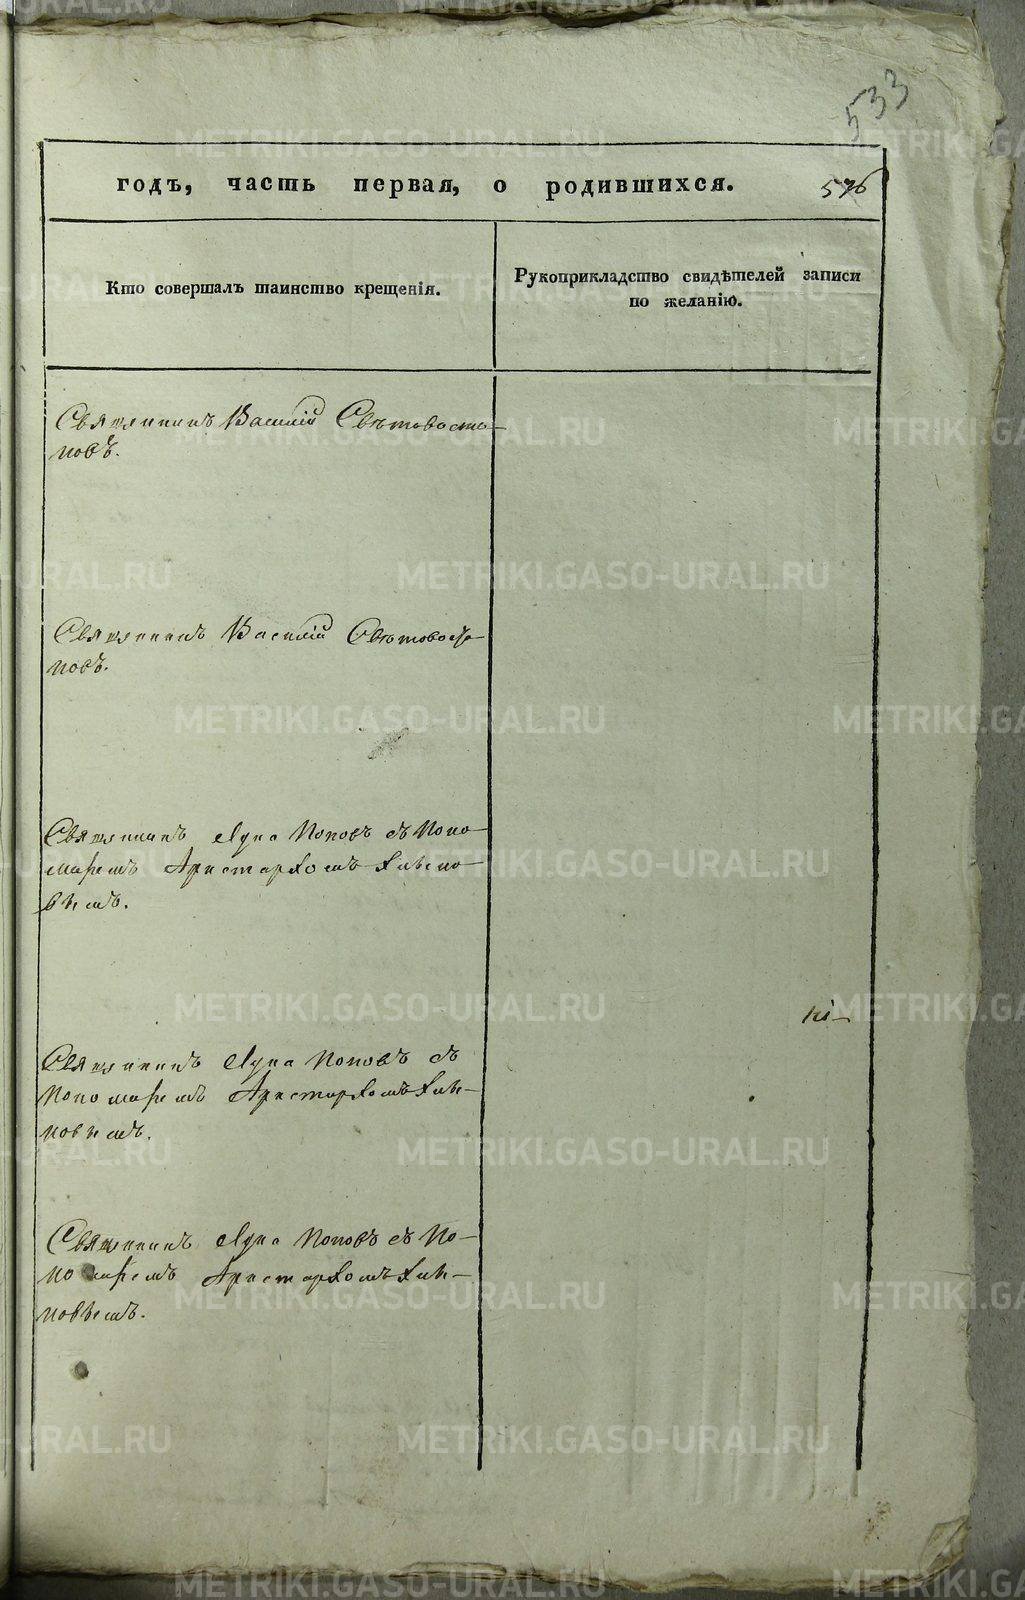 533
годъ, часть первая, о родившихся. 576
Кто совершалъ таинство крещенія.
Рукоприкладство свидѣтелей записи
по желанію.
Священникъ Василій Свѣтовосто-
ковъ.
Священникъ Василій Свѣтовосто-
ковъ.
Священникъ Лука Поповъ съ Поно-
маремъ Аристархомъ
Священникъ Лука Поповъ съ
Пономаремъ Аристархомъ
Священникъ Лука Поповъ съ По-
номаремъ Аристархомъ
METRIKI.GASO-URAL.RU